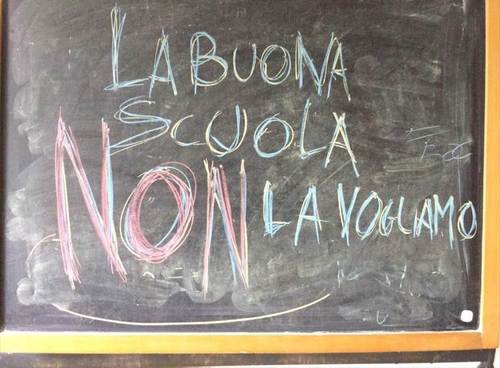 LA BUONA
SCUOLA
NON LA VOGLIAMO